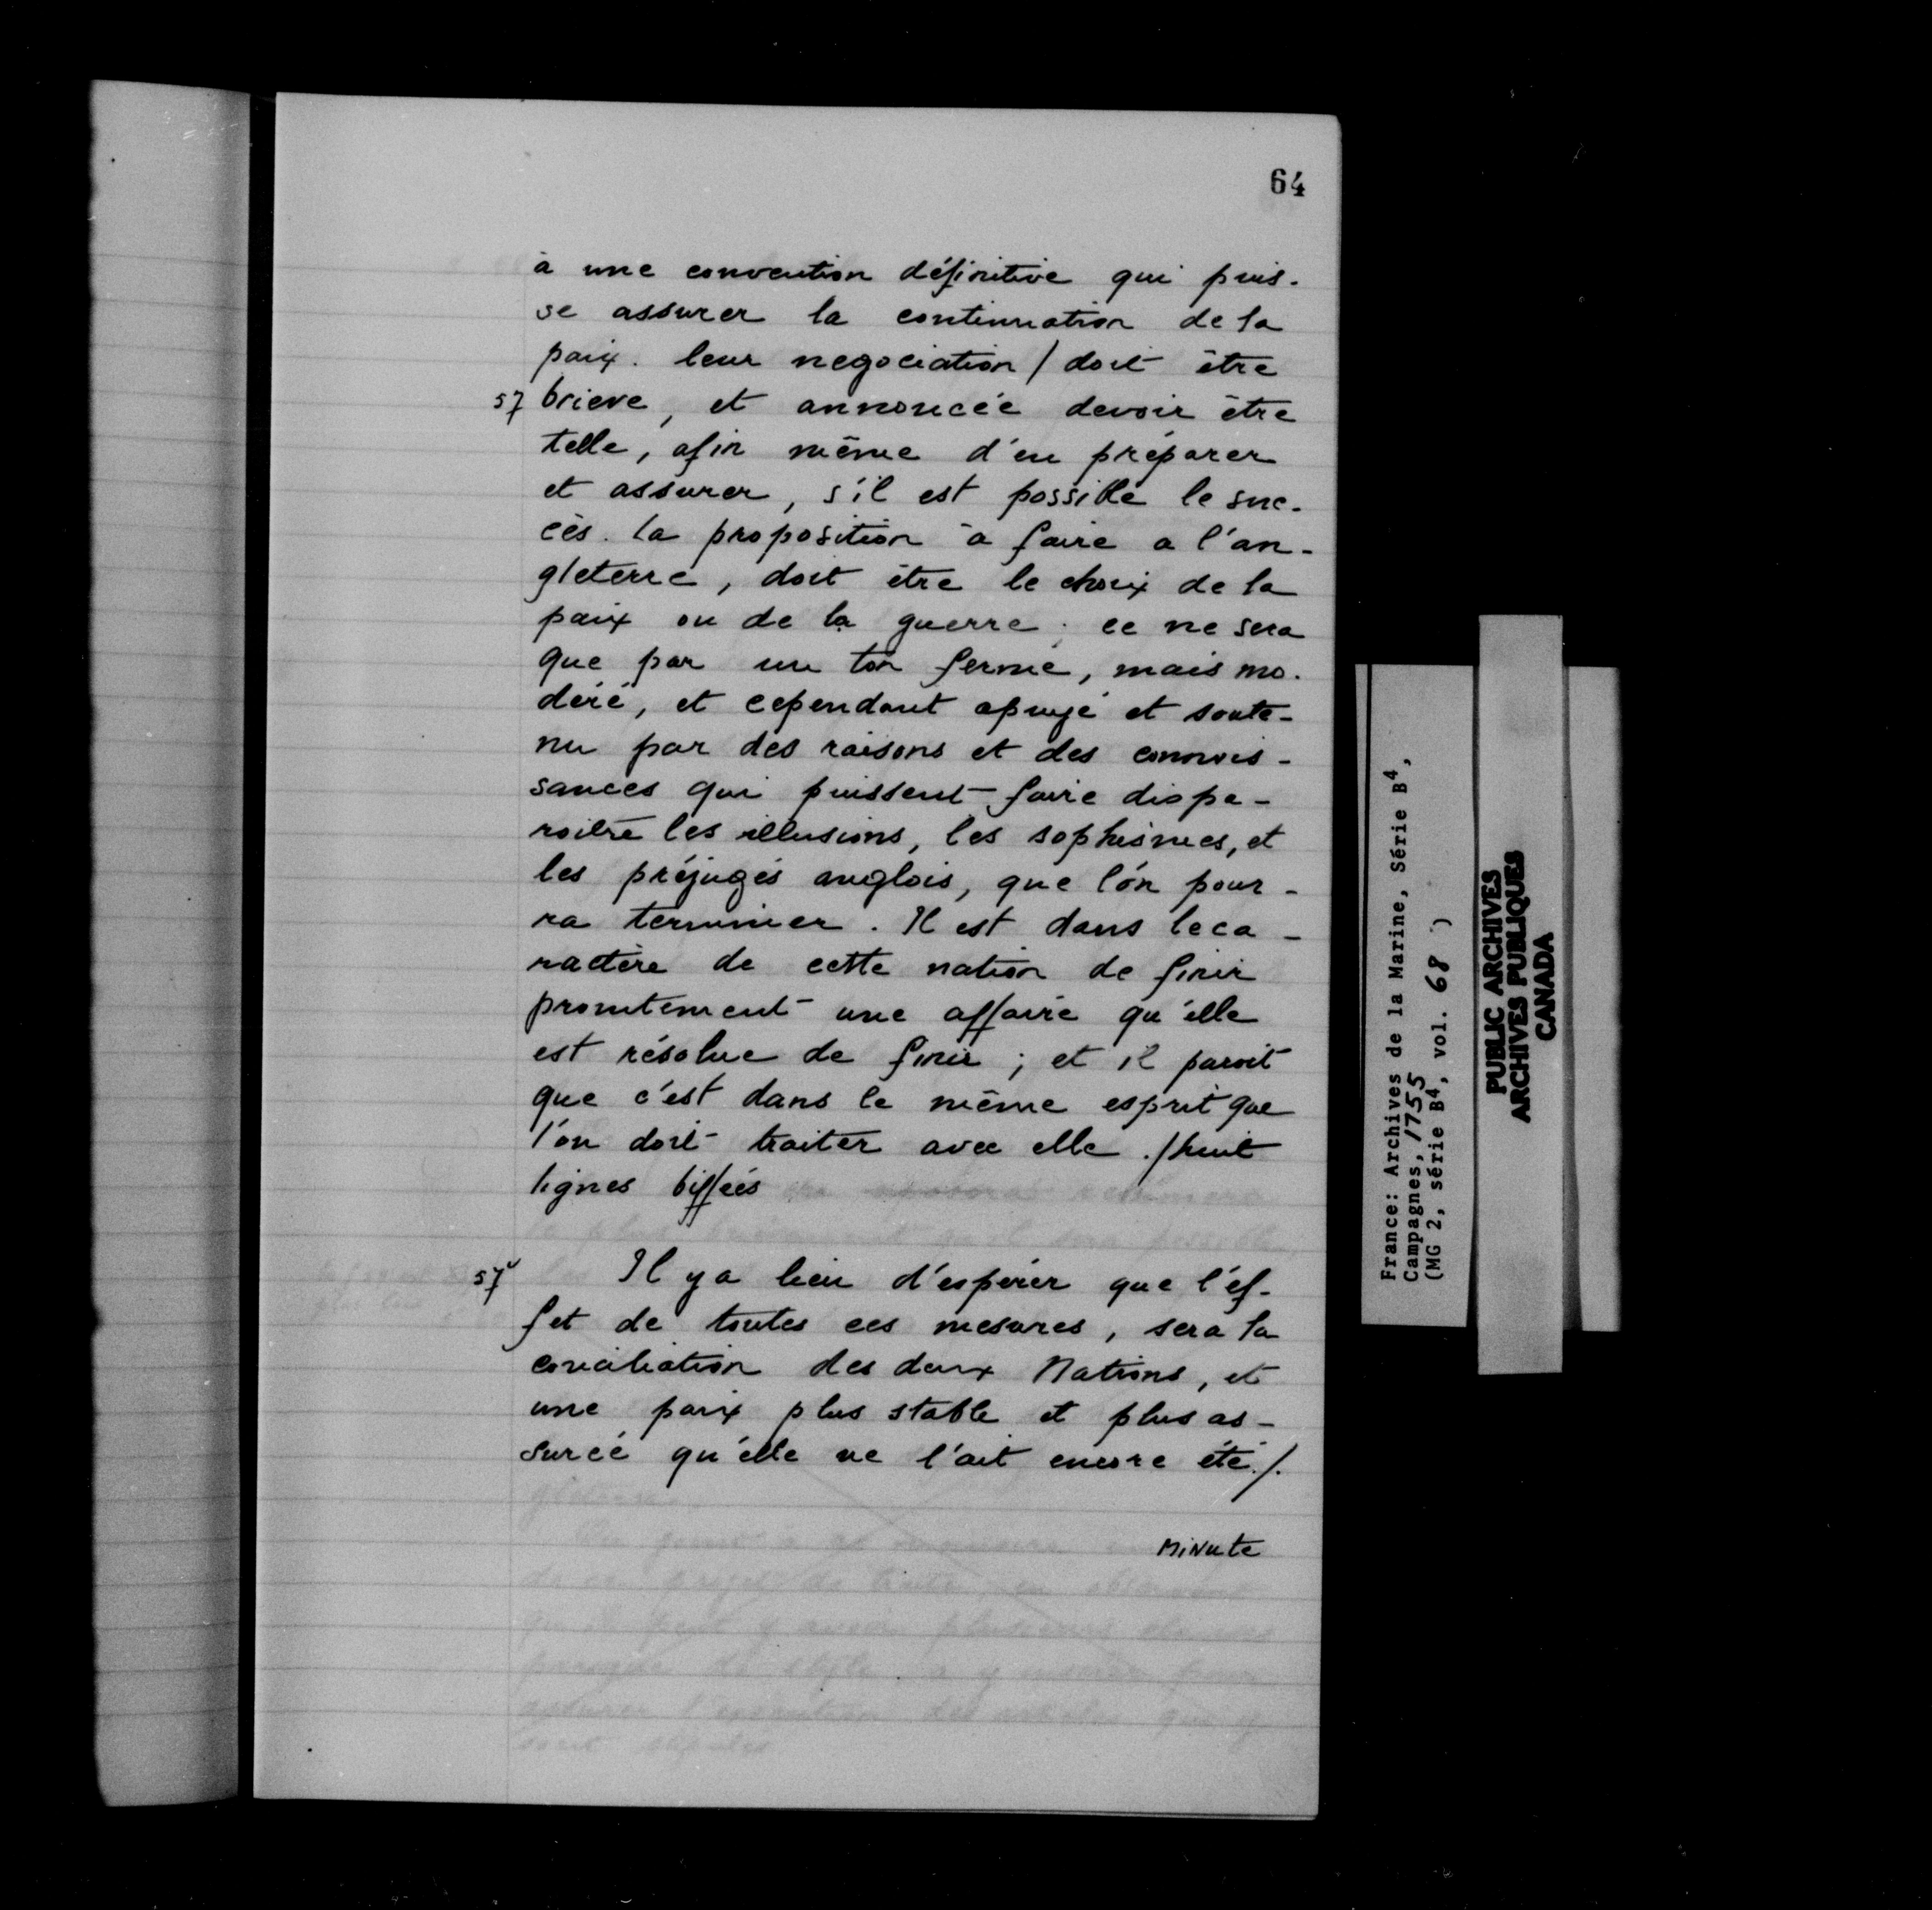 64
à une convention définitive qui puis-
se assurer la continuation de la
paix. leur negociation / doit être
57 brieve, et annoncée devoir être
telle, afin même d'en préparer
et assurer, s'il est possible le suc-
cès. la proposition à faire a l'an-
gleterre, doit être le choix de la
paix ou de la guerre. ce ne sera
que par un ton ferme, mais mo-
déré, et cependant apuyé et soute-
nu par des raisons et des connois-
sances qui puissent faire dispa-
roitre les illusions, les sophismes, et
les préjugés anglois, que l'on pour-
ra terminer. Il est dans le ca-
ractère de cette nation de finir
promtement une affaire qu'elle
est résolue de finir ; et il paroit
que c'est dans le même esprit que
l'on doit traiter avec elle ./huit
lignes biffées
57v Il y a lieu d'espérer que l'ef-
fet de toutes ces mesures, sera la
conciliation des deux Nations, et
une paix plus stable et plus as-
surée qu'elle ne l'ait encore été./.
Minute
France: Archives de la Marine, Série B4,
Campagnes, 1755
(MG 2, série B4, vol. 68 )
PUBLIC ARCHIVES
ARCHIVES PUBLIQUES
CANADA